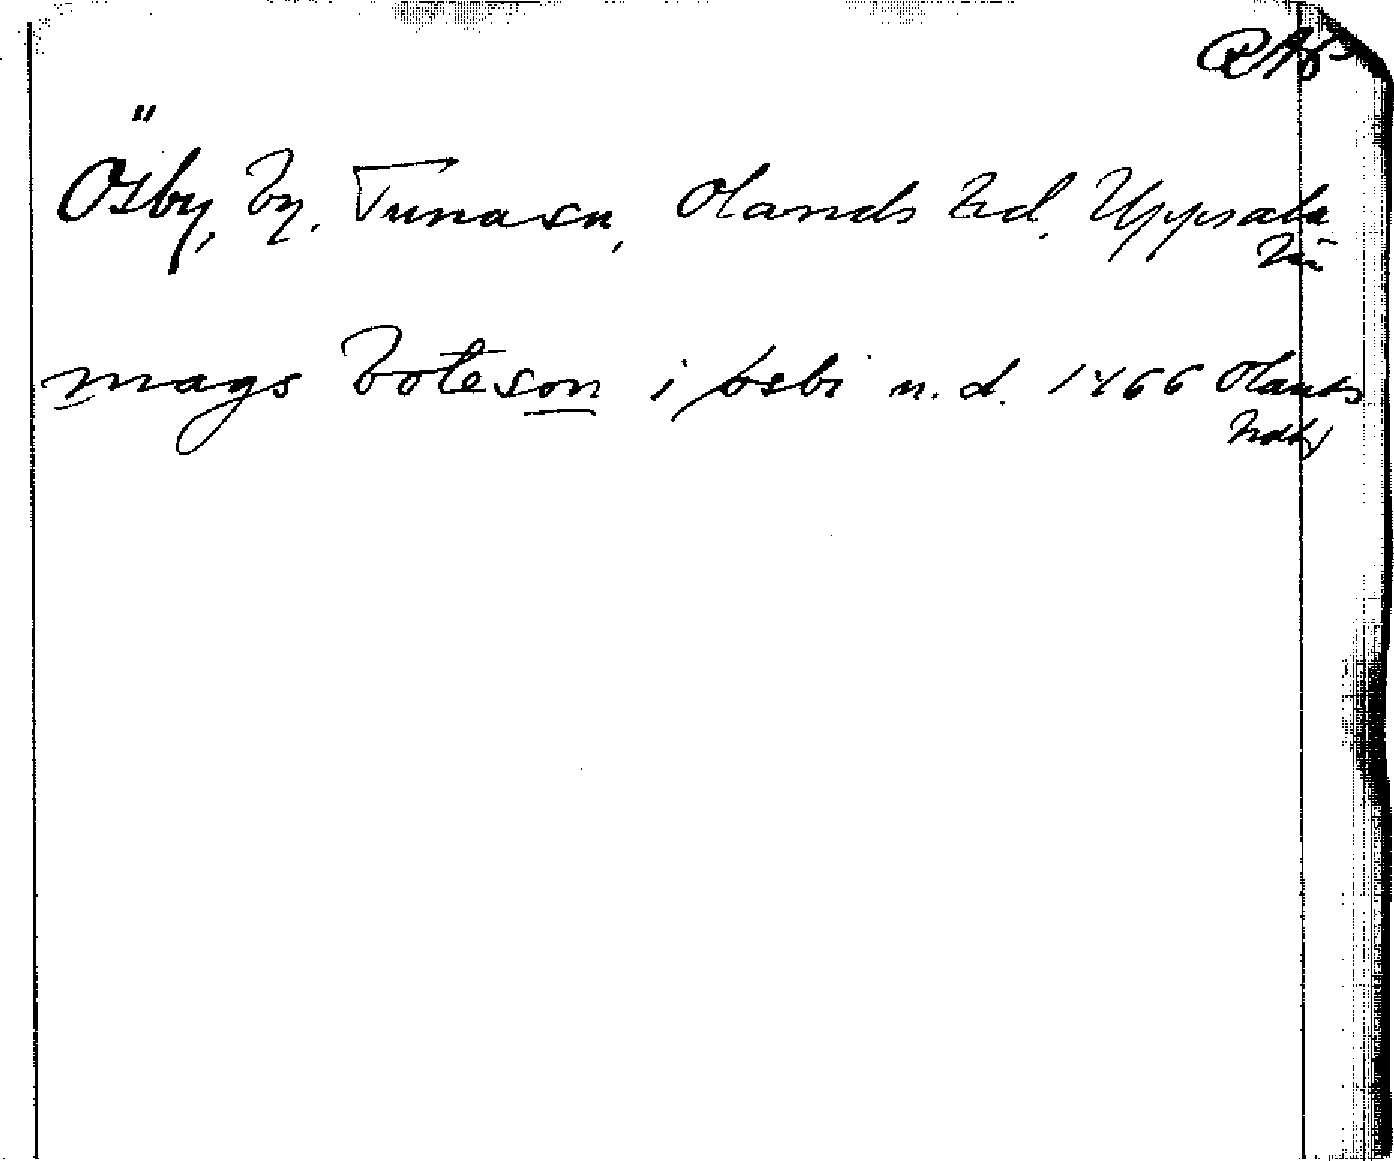 Ösby, by. Tuna sn, Olands hd. Uppsala
län
mags boteson i øsbi n.d. 1466 Olands
hdbr